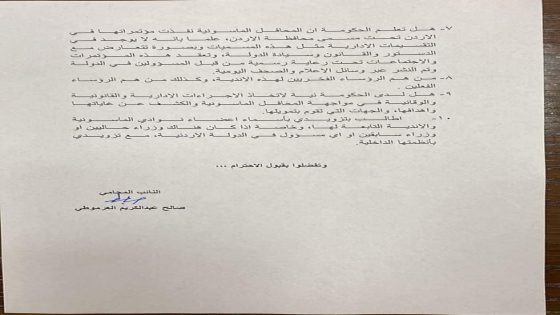 ٧- هل تعلم الحكومة ان المحافل الماسونية نفذت مؤتمراتها في
الاردن تحت مسمى محافظة الاردن، علما بانه لا يوجد في
التقسيمات الادارية مثل هذه المسميات وبصورة تتعارض مع
الدستور والقانون وسيادة الدولة، وتعقد هذه المؤتمرات
والاجتماعات تحت رعاية رسمية من قبل المسؤولين في الدولة
وتم النشر عبر وسائل الاعلام والصحف اليومية.
٨- من هم الرؤساء الفخريين لهذه الاندية، وكذلك من هم الرؤساء
الفعلين.
٩- هل لدى الحكومة نية لاتخاذ الاجراءات الادارية والقانونية
والوقائية في مواجهة المحافل الماسونية والكشف عن غاياتها
واهدافها، والجهات التي تقوم بتمويلها.
١٠- اطالب بتزويدي بأسماء اعضاء نوادي الماسونية
والاندية التابعة لها، وخاصة اذا كان هنالك وزراء حاليين او
وزراء سابقين او اي مسؤول في الدولة الاردنية، مع تزويدي
بأنظمتها الداخلية.
وتفضلوا بقبول الاحترام ...
النائب المحامي
صالح عبدالكريم العرموطي